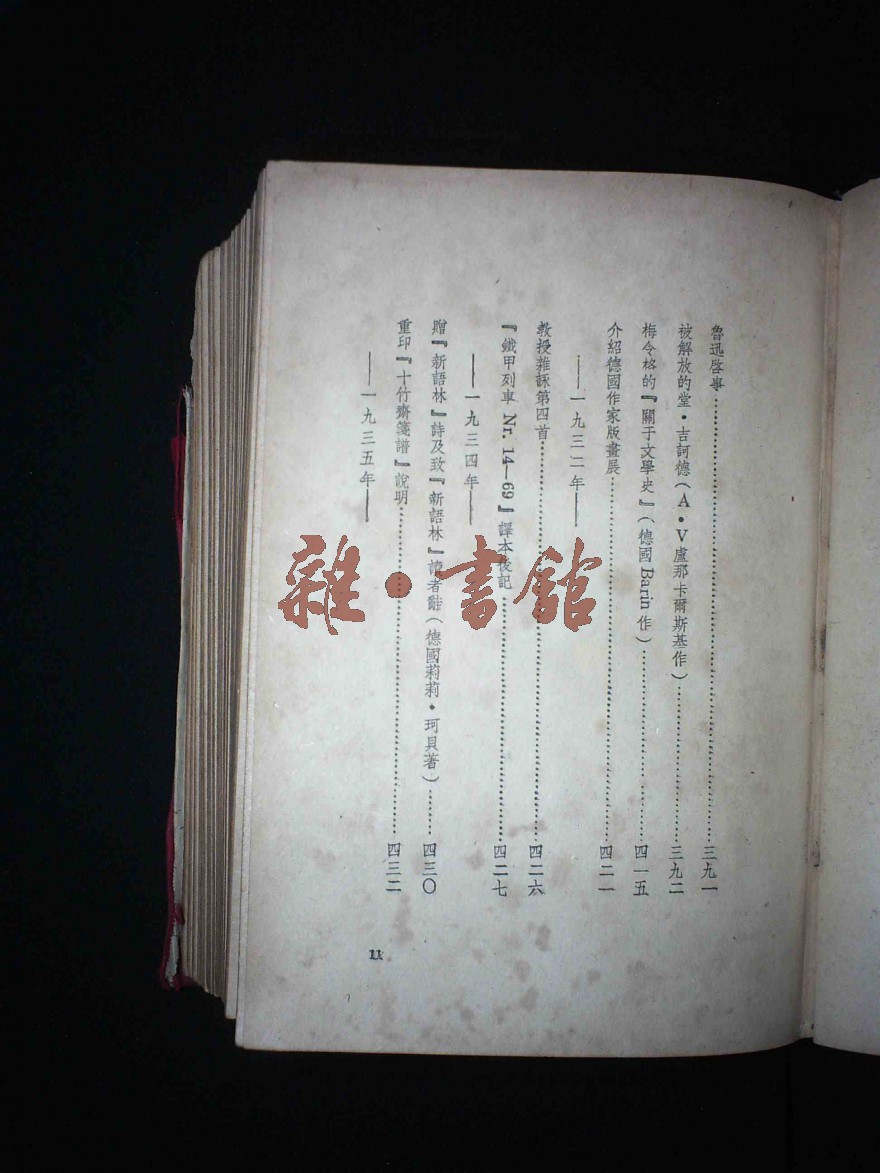 魯迅啓事……三九一
被解放的堂・吉訶德(A・V盧那卡爾斯基作)……三九二
梅令格的『關于文學史』(德國Barin作)……四一五
介紹德國作家版畫展……四二一
——一九三二年——
教授雜詠第四首……四二六
『鐵甲列車 Nr. 14—69』譯本後記……四二七
——一九三四年——
贈『新語林』詩及致『新語林』讀者辭(德國莉莉・珂貝著)……四三〇
重印『十竹齋箋譜』說明……四三二
——一九三五年——
11
雜・書館